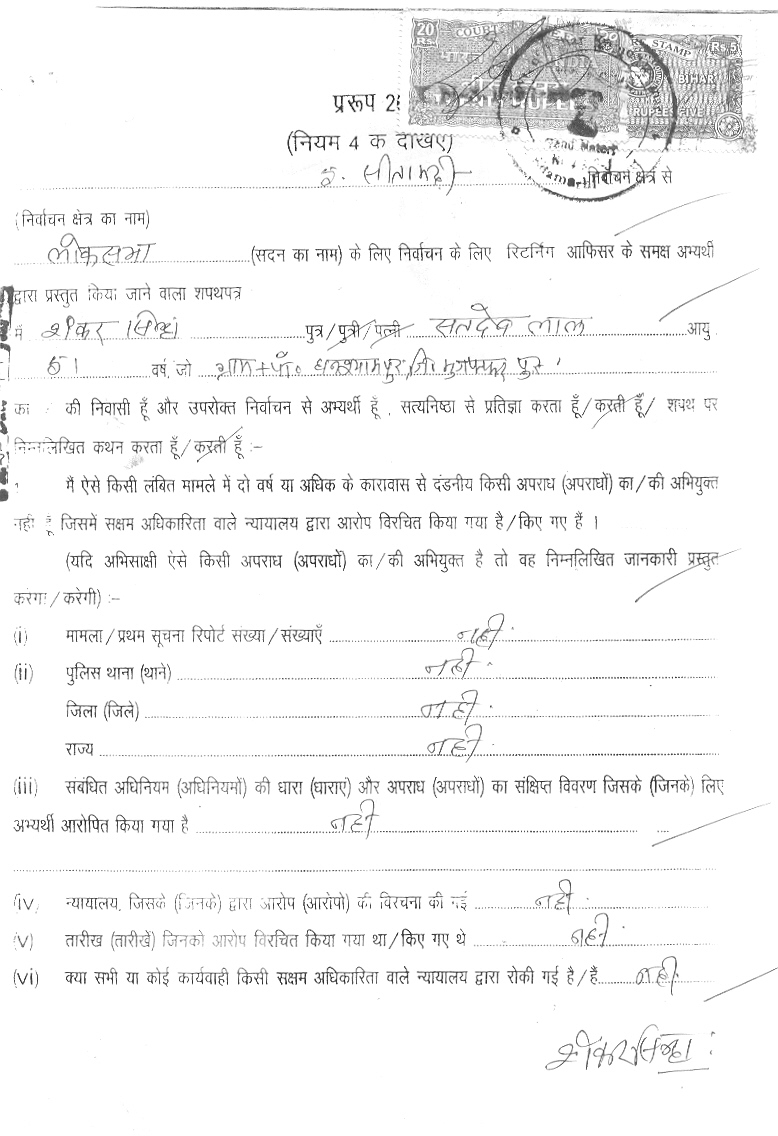 20 Rs. COURT STAMP Rs.5
भारत INDIA BIHAR
RUPEES RUPEES FIVE
प्ररूप 2
(नियम 4 क दाखए)
सीतामढ़ी निर्वाचन क्षेत्र से
(निर्वाचन क्षेत्र का नाम)
लोकसभा (सदन का नाम) के लिए निर्वाचन के लिए रिटर्निंग आफिसर के समक्ष अभ्यर्थी
द्वारा प्रस्तुत किया जाने वाला शपथपत्र
मैं शंकर सिन्हा पुत्र/पुत्री/पत्नी सतदेव लाल आयु
51 वर्ष, जो ग्राम+पो० घनश्यामपुर, जि० मुजफ्फरपुर
का की निवासी हूँ और उपरोक्त निर्वाचन से अभ्यर्थी हूँ , सत्यनिष्ठा से प्रतिज्ञा करता हूँ/करती हूँ/ शपथ पर
निम्नलिखित कथन करता हूँ/करती हूँ :-
मैं ऐसे किसी लंबित मामले में दो वर्ष या अधिक के कारावास से दंडनीय किसी अपराध (अपराधों) का/की अभियुक्त
नहीं हूँ जिसमें सक्षम अधिकारिता वाले न्यायालय द्वारा आरोप विरचित किया गया है/किए गए हैं ।
(यदि अभिसाक्षी ऐसे किसी अपराध (अपराधों) का/की अभियुक्त है तो वह निम्नलिखित जानकारी प्रस्तुत
करेगा/करेगी) :-
(i) मामला/प्रथम सूचना रिपोर्ट संख्या/संख्याएँ नहीं
(ii) पुलिस थाना (थाने) नहीं
जिला (जिले) नहीं
राज्य नहीं
(iii) संबंधित अधिनियम (अधिनियमों) की धारा (धाराएं) और अपराध (अपराधों) का संक्षिप्त विवरण जिसके (जिनके) लिए
अभ्यर्थी आरोपित किया गया है नहीं
(iv) न्यायालय, जिसके (जिनके) द्वारा आरोप (आरोपो) की विरचना की गई नहीं
(v) तारीख (तारीखें) जिनको आरोप विरचित किया गया था/किए गए थे नहीं
(vi) क्या सभी या कोई कार्यवाही किसी सक्षम अधिकारिता वाले न्यायालय द्वारा रोकी गई है/हैं नहीं
शंकर सिन्हा